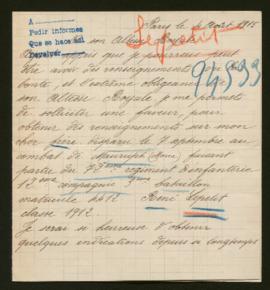 A
Pedir informes
Que se hace así
Devolver
Paris le 4 Août 1915
Lepetit
94533
son Altesse Royale
que je pourrais peut
être avoir des renseignements
bonté, et l'extrême obligeance de
son Altesse Royale je me permets
de solliciter une faveur, pour
obtenir des renseignements sur mon
cher frère disparu le 7 septembre au
combat de faisant
partie du régiment d'infanterie
12ème compagnie 3ème bataillon
matricule René Lepetit
classe 1912
Je serai si heureuse d'obtenir
quelques indications depuis si longtemps